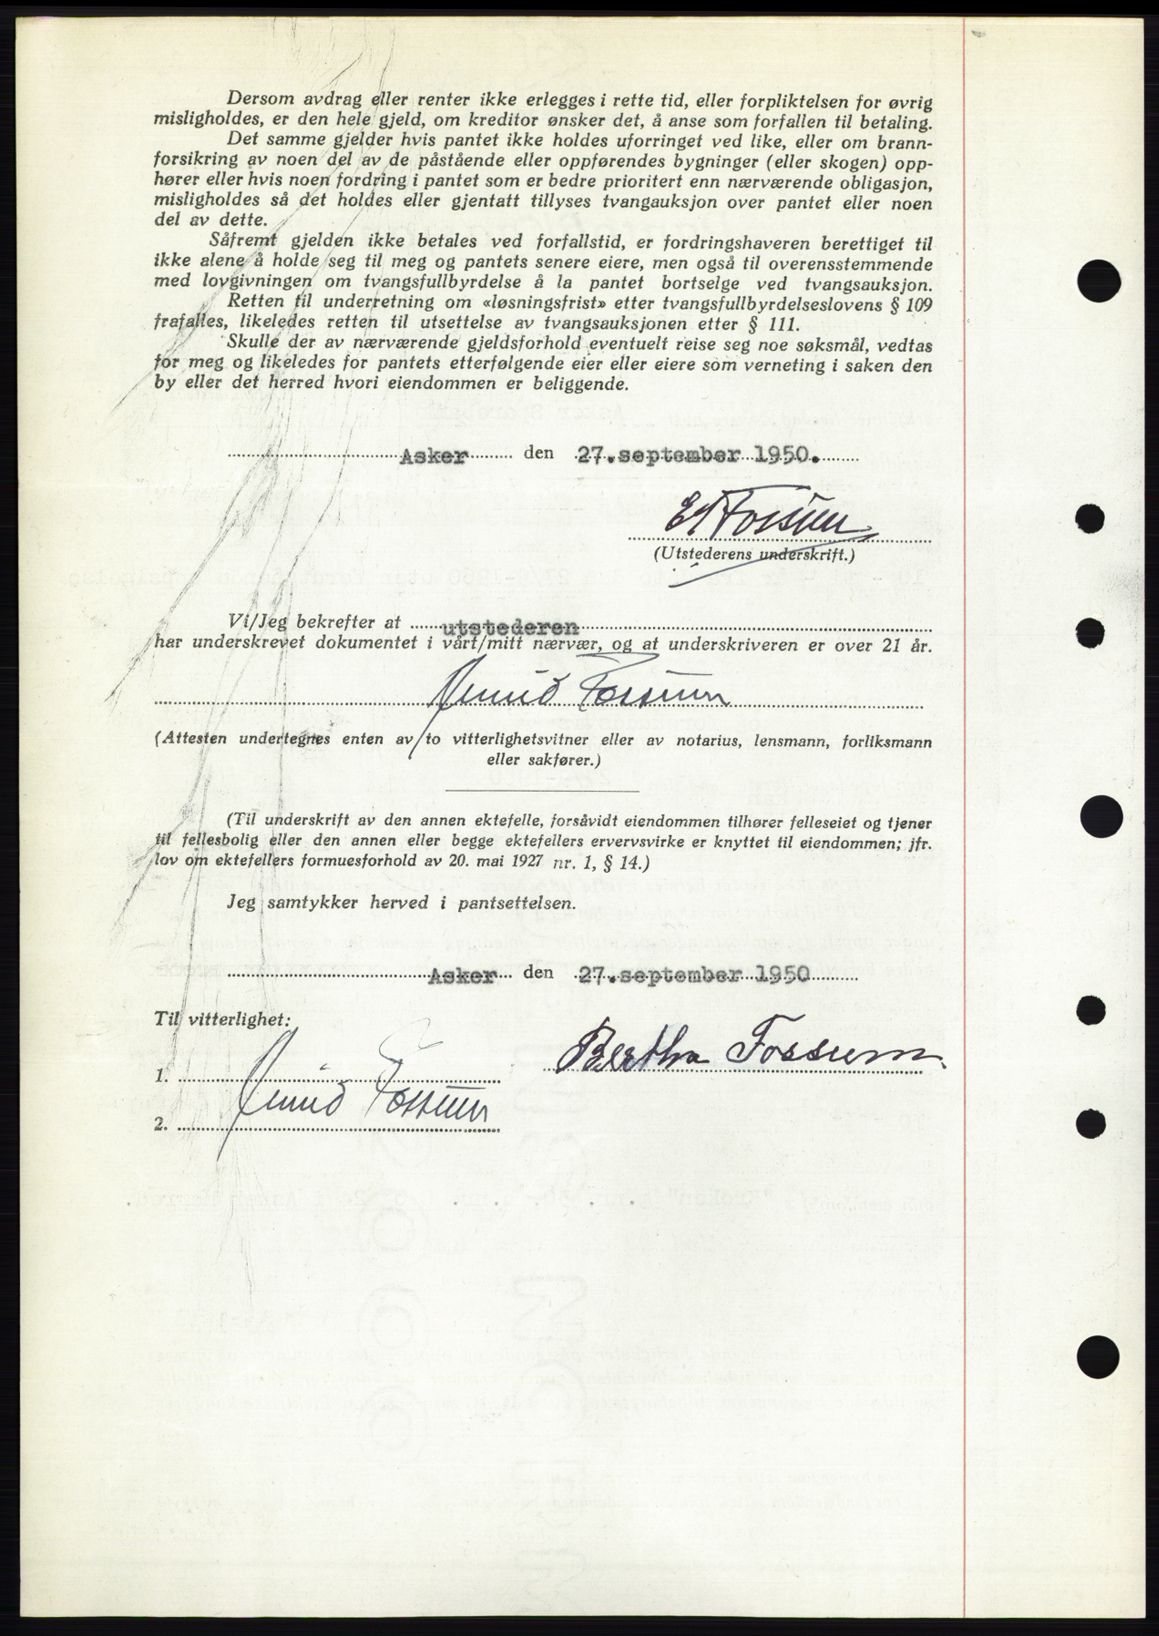 Dersom avdrag eller renter ikke erlegges i rette tid, eller forpliktelsen for øvrig
misligholdes, er den hele gjeld, om kreditor ønsker det, å anse som forfallen til betaling.
Det samme gjelder hvis pantet ikke holdes uforringet ved like, eller om brann-
forsikring av noen del av de påstående eller oppførendes bygninger (eller skogen) opp-
hører eller hvis noen fordring i pantet som er bedre prioritert enn nærværende obligasjon,
misligholdes så det holdes eller gjentatt tillyses tvangauksjon over pantet eller noen
del av dette.
Såfremt gjelden ikke betales ved forfallstid, er fordringshaveren berettiget til
ikke alene å holde seg til meg og pantets senere eiere, men også til overensstemmende
med lovgivningen om tvangsfullbyrdelse å la pantet bortselge ved tvangsauksjon.
Retten til underretning om «løsningsfrist» etter tvangsfullbyrdelseslovens § 109
frafalles, likeledes retten til utsettelse av tvangsauksjonen etter § 111.
Skulle der av nærværende gjeldsforhold eventuelt reise seg noe søksmål, vedtas
for meg og likeledes for pantets etterfølgende eier eller eiere som verneting i saken den
by eller det herred hvori eiendommen er beliggende.
Asker den 27.september 1950.
Fossum
(Utstederens underskrift.)
Vi/Jeg bekrefter at utstederen
har underskrevet dokumentet i vårt/mitt nærvær, og at underskriveren er over 21 år.
Fossum
(Attesten undertegnes enten av to vitterlighetsvitner eller av notarius, lensmann, forliksmann
eller sakfører.)
(Til underskrift av den annen ektefelle, forsåvidt eiendommen tilhører felleseiet og tjener
til fellesbolig eller den annen eller begge ektefellers ervervsvirke er knyttet til eiendommen; jfr.
lov om ektefellers formuesforhold av 20. mai 1927 nr. 1, § 14.)
Jeg samtykker herved i pantsettelsen.
Asker den 27.september 1950
Til vitterlighet:
Bertha Fossum
1.
Fossum
2.